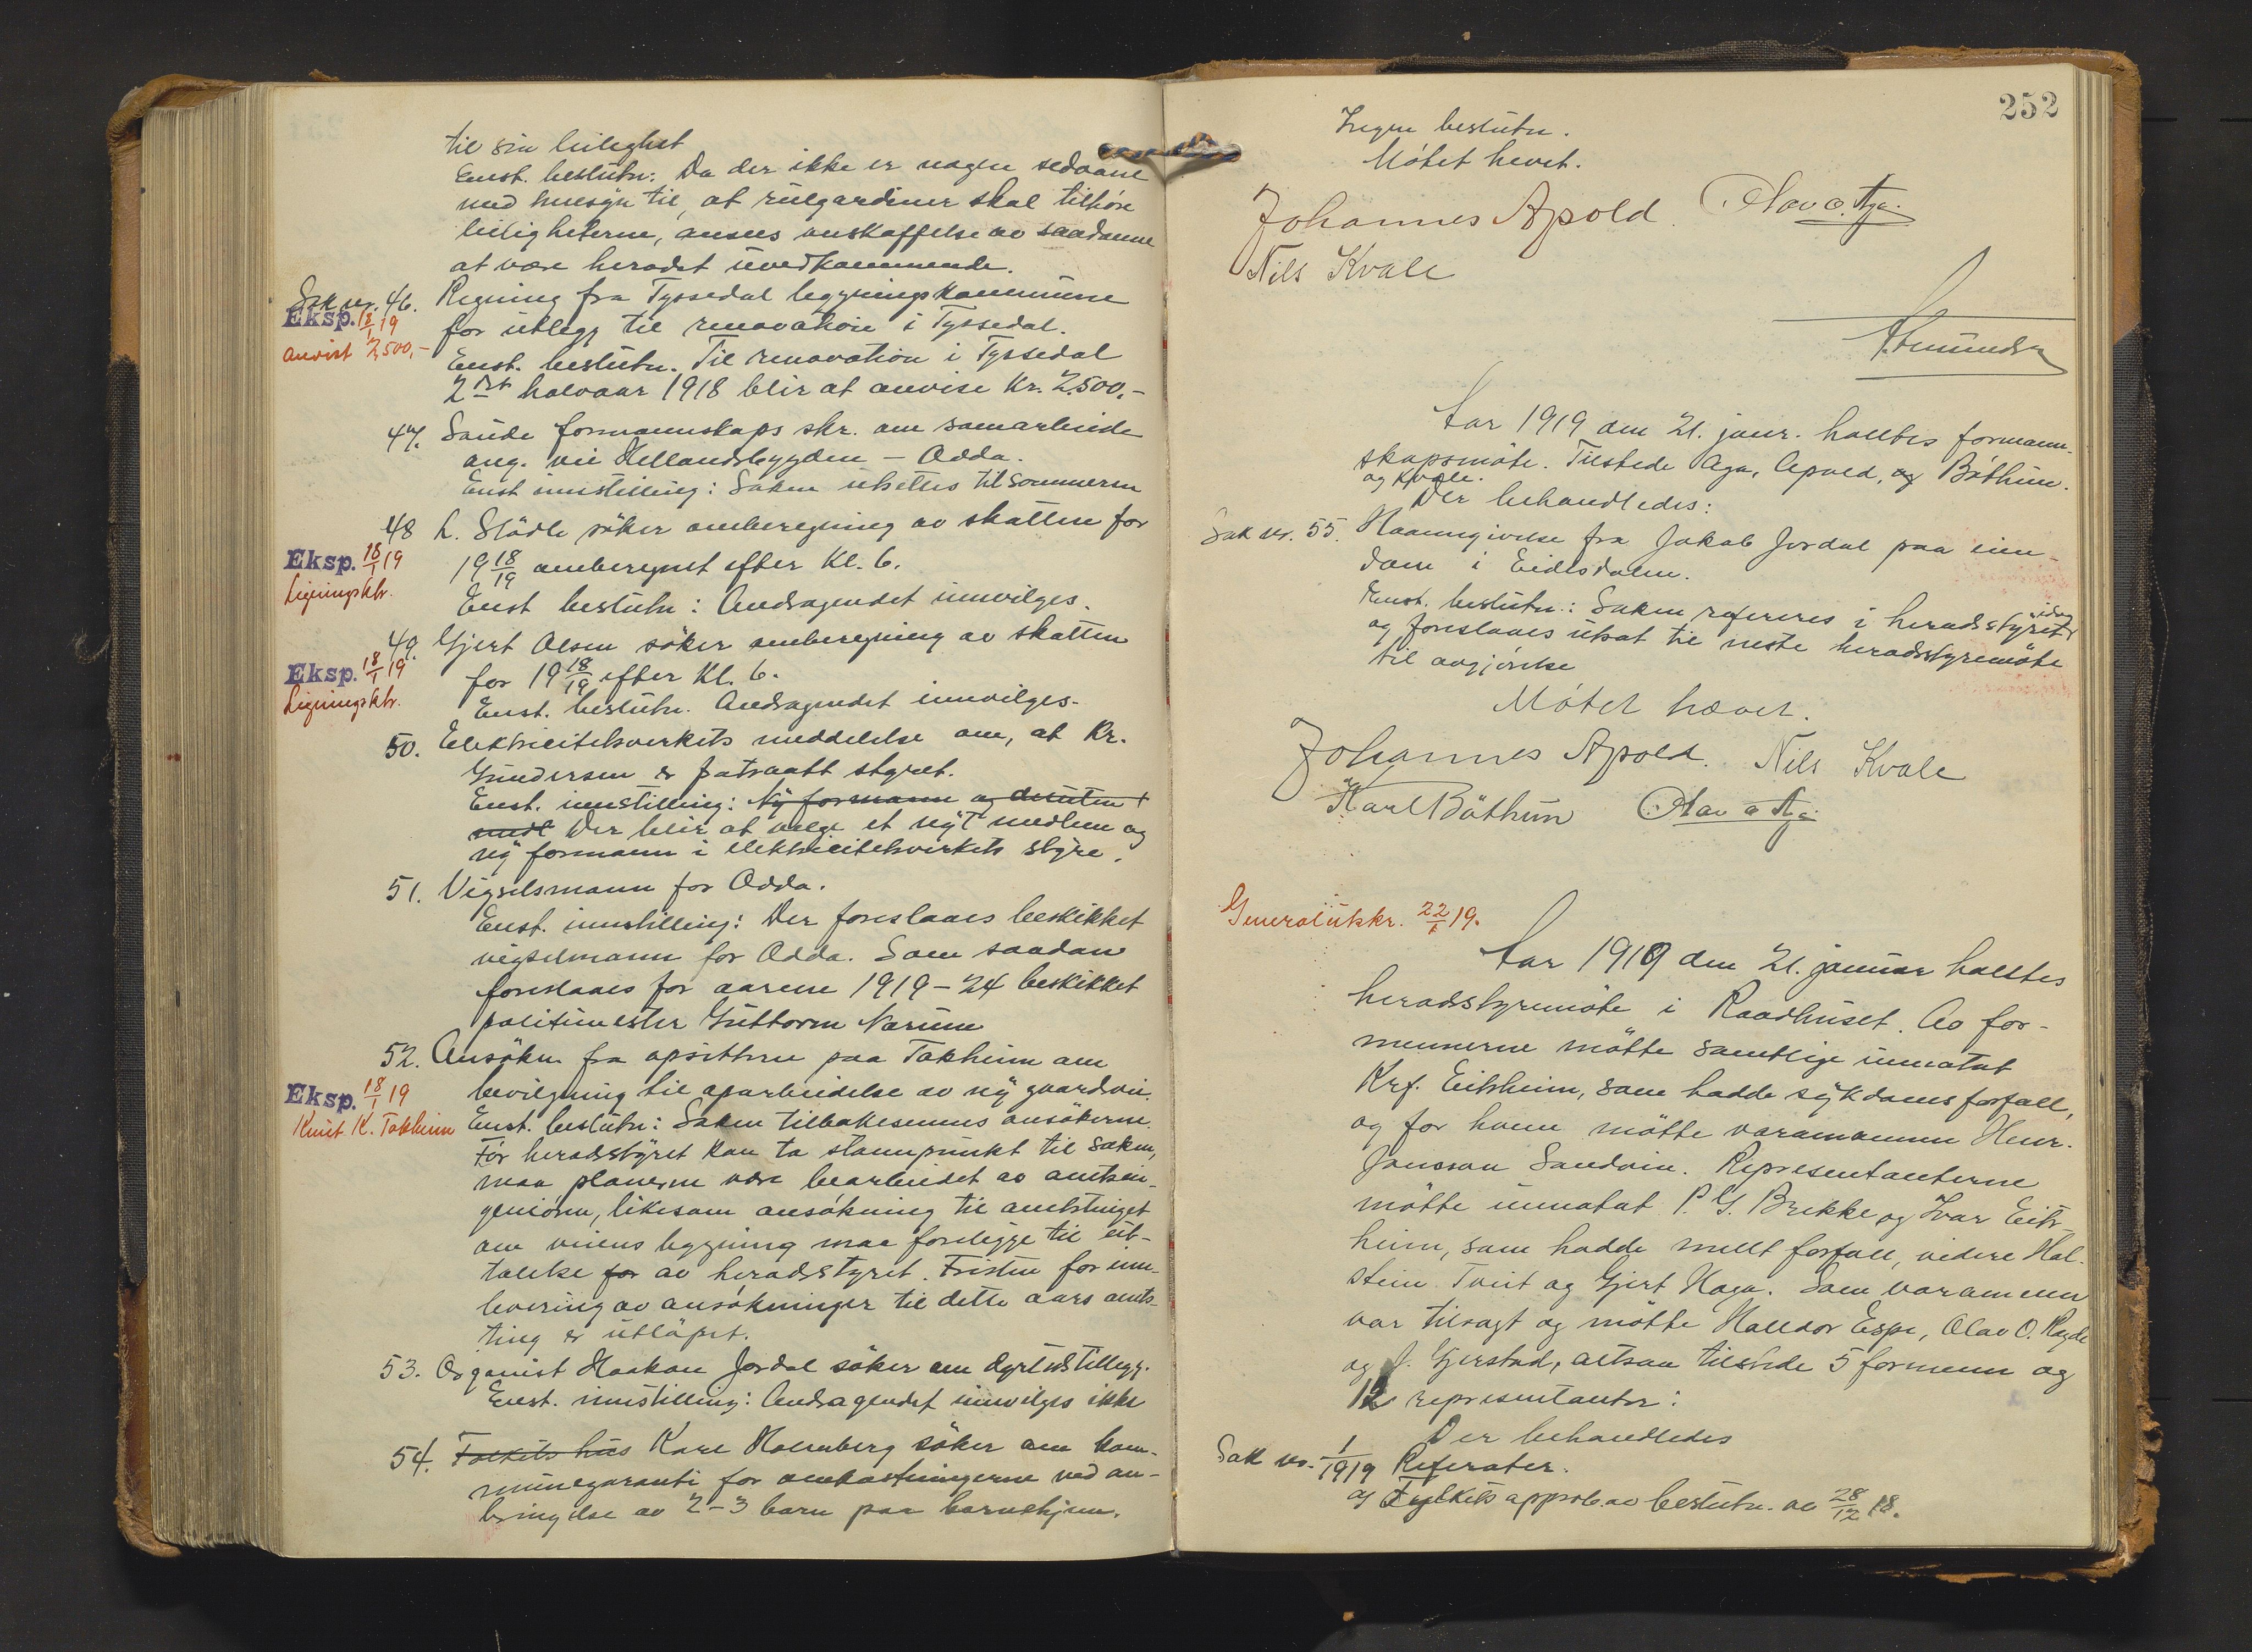 til sin leilighet
Enst. beslutn: Da der ikke er nogen sedvane
med hensyn til, at rulgardiner skal tilhøre
leiligheterne, ansees anskaffelse av saadanne
at være heradet uvedkommende.
Sak nr. 46. Regning fra Tyssedal bygningskommune
Eksp. 18/1 19
anvist 2,500,-
for utlegg til renovation i Tyssedal.
Enst. beslutn. Til renovation i Tyssedal
2det halvaar 1918 blir at anvise Kr. 2,500,-
47. Saude formannskaps skr. om samarbeide
ang. vei Hellandsbygden – Odda.
Enst innstilling: Saken utsettes til sommeren
48 L. Slådle söker omberegning av skatten for
Eksp. 18/1 19
Ligningsktr.
1918/19 omberegnet efter Kl. 6.
Enst beslutn: Andragendet innvilges.
49. Gjert Olsen söker omberegning av skatten
Eksp. 18/1 19
Ligningsktr.
for 1918/19 efter Kl. 6.
Enst. beslutn. Andragendet innvilges.
50. Elektricitetsverkets meddelelse om, at Kr.
Gundersen er fratraatt styret.
Enst. innstilling: Ny formann og desuten 1
medl Der blir at velge et nyt medlem og
ny formann i elektricitetsverkets styre.
51. Vigselsmann for Odda.
Enst. innstilling: Der foreslaaes beskikket
vigselmann for Odda. Som saadan
foreslaaes for aarene 1919–24 beskikket
politimester Guttorm Narum
52. Ansökn fra opsitterne paa Tokheim om
Eksp. 18/1 19
Knut K. Tokheim
bevilgning til oparbeidelse av ny gaardsvei.
Enst. beslutn: Saken tilbakesennes ansökerne.
För heradsstyret kan ta stannpunkt til saken,
maa planerne være bearbeidet av amtsin-
geniören, likesom ansökning til amtstinget
om veiens bygning maa foreligge til ut-
talelse for av heradsstyret. Fristen for inn-
levering av ansökninger til dette aars amts-
ting er utlöpet.
53. Organist Haakon Jordal söker om dyrtidstillegg.
Enst. innstilling: Andragendet innvilges ikke
54. Folkets hus Karl Holmberg söker om kom-
munegaranti for omkostningerne ved an-
bringelse av 2–3 barn paa barnehjem.
252
Ingen beslutn.
Mötet hevet.
Johannes Apold Olav O. Aga.
Nils Kvale
Aar 1919 den 21. janr.holltes formann-
skapsmöte. Tilstede Aga, Apold, og Böthun.
og Kvale.
Der behandledes:
Sak nr. 55. Haanngivelse fra Jakob Jordal paa eien-
dom i Eidesdalen.
Enst. beslutn.: Saken refereres i heradsstyret idag
og foreslaaes utsat til neste heradsstyremöte
til avgjörelse
Mötet hævet.
Johannes Apold. Nils Kvale
Karl Böthun Olav O Aga
Generalutskr. 22/1 19.
Aar 1919 den 21. januar holltes
heradsstyremöte i Raadhuset. Av for-
mennerne mötte samtlige unntatt
Krf. Eitrheim, som hadde sykdomsforfall,
og for hvem mötte varamannen Henr.
Jansson Sandvin. Representanterne
mötte unntatt P. G. Brekke og Ivar Eitr-
heim, som hadde mellt forfall, videre Hal-
stein Tveit og Gjert Haga. Som varamenn
var tilsagt og mötte Halldor Espe, Olav O. Ragde
og J. Gjerstad, altsaa tilstede 5 formenn og
12 representanter:
Der behandledes
Sak nr. 1/1919 Referater.
a) Fylkets approb. av beslutn. av 28/12 18.